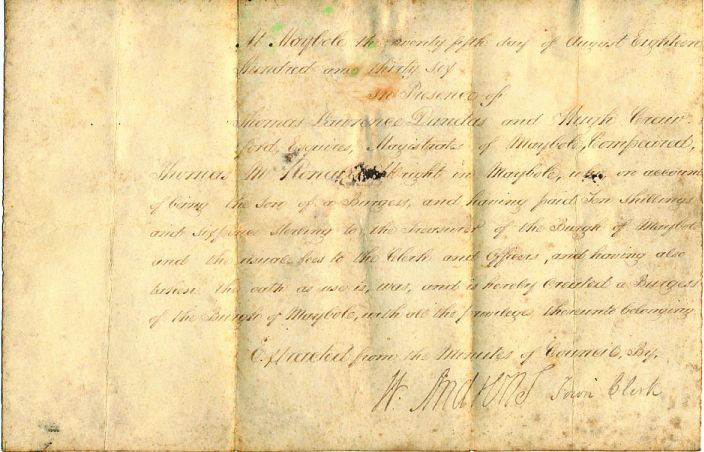 At Maybole the twenty fifth day of August Eighteen
Hundred and thirty six
In Presence of
Thomas Lawrence Dundas and Hugh Craw-
ford, esquires, Magistrates of Maybole, Compeared,
Thomas Wright in Maybole, who on account
of being the son of a Burgess, and having paid Ten shillings
and sixpence sterling to the Treasurer of the Burgh of Maybole
and the usual fees to the Clerk and Officers, and having also
taken the oath as use is, was, and is hereby Created a Burgess
of the Burgh of Maybole, with all the privileges thereunto belonging
Extracted from the Minutes of Council, By,
W. Town Clerk